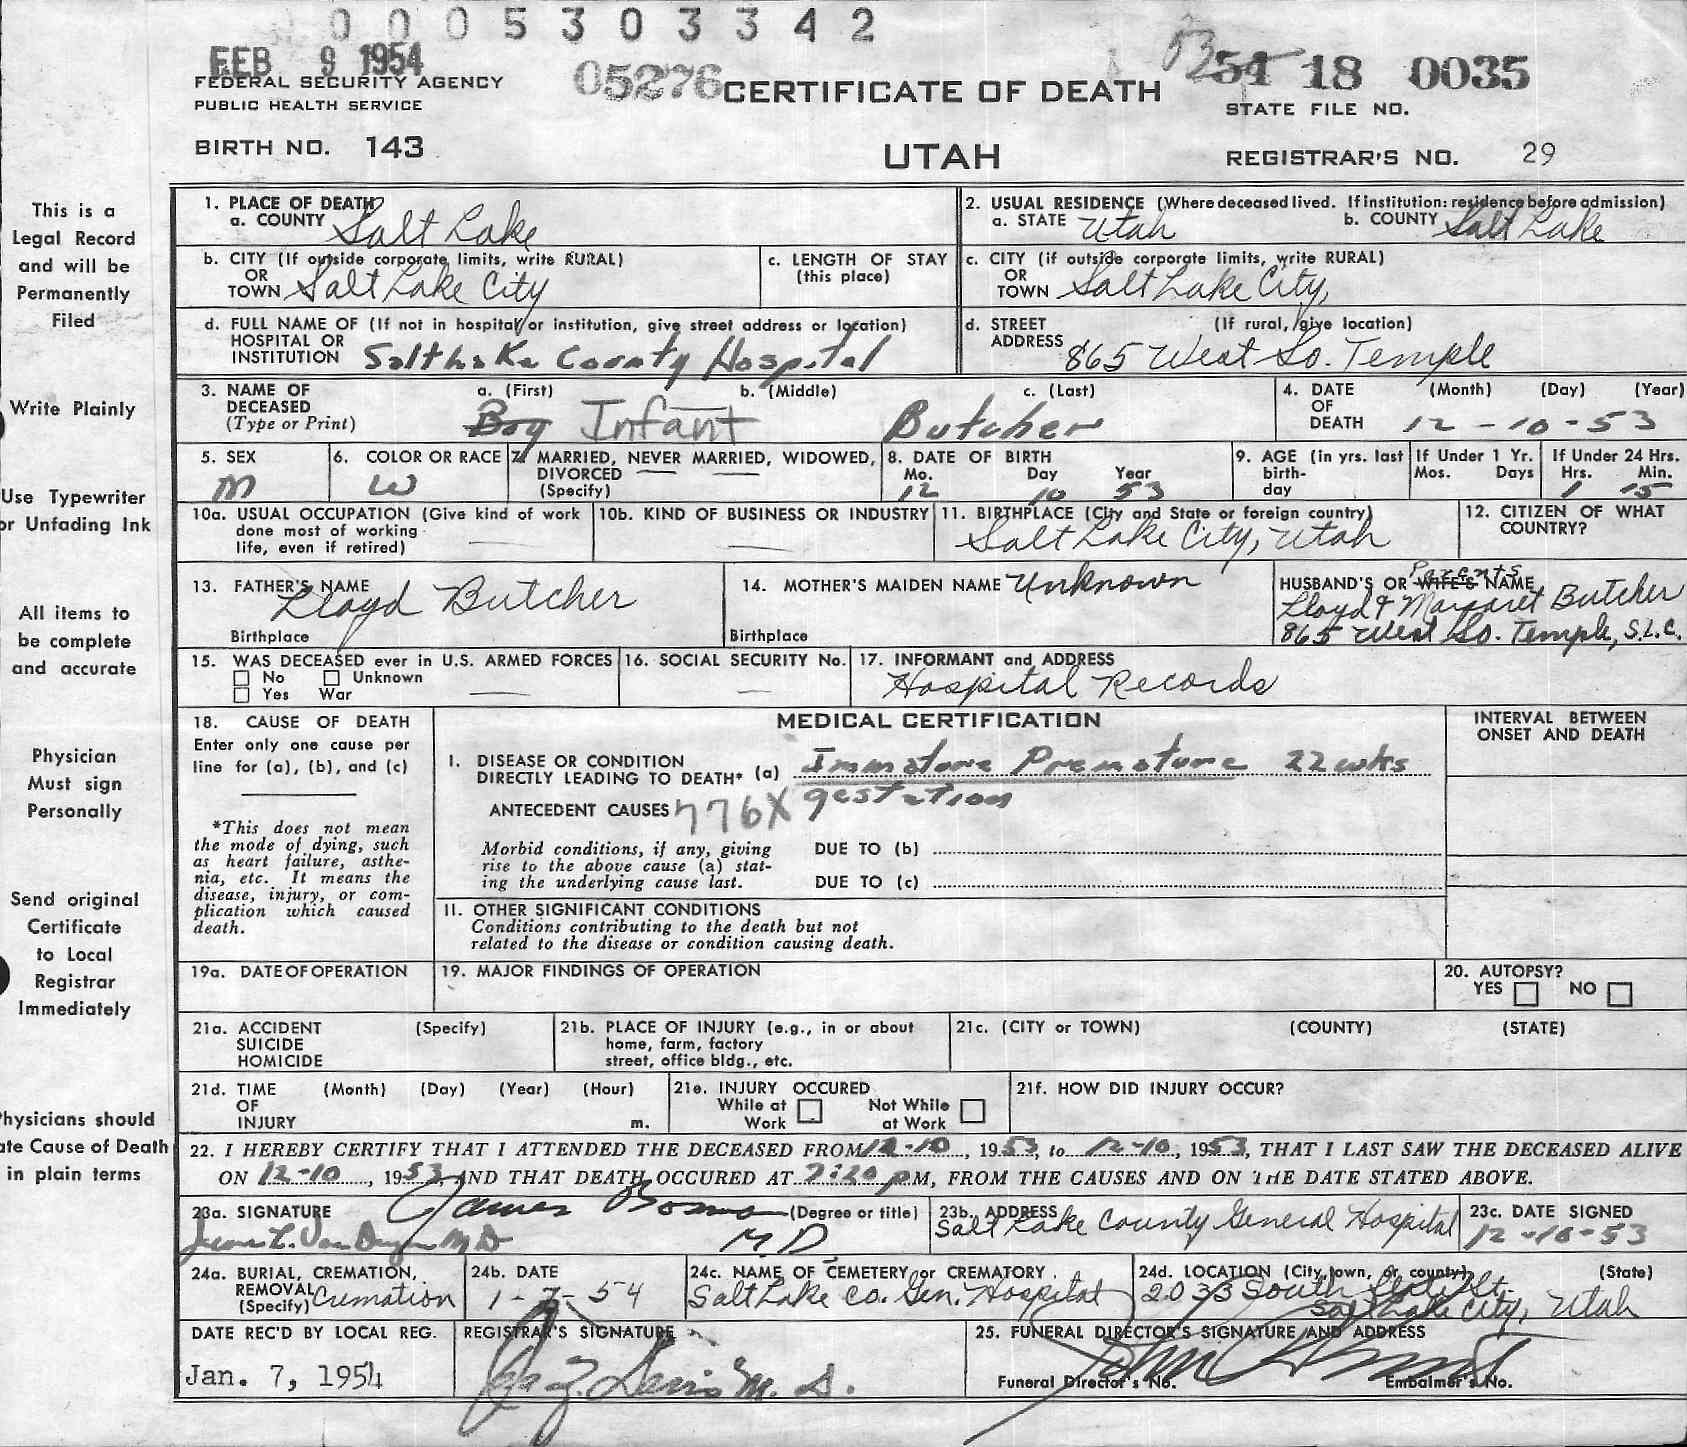 0005303342
FEB 9 1954
FEDERAL SECURITY AGENCY
PUBLIC HEALTH SERVICE
BIRTH NO. 143
05276 CERTIFICATE OF DEATH
UTAH
53 54 18 0035
STATE FILE NO.
REGISTRAR'S NO. 29
This is a
Legal Record
and will be
Permanently
Filed
Write Plainly
Use Typewriter
or Unfading Ink
All items to
be complete
and accurate
Physician
Must sign
Personally
Send original
Certificate
to Local
Registrar
Immediately
hysicians should
ate Cause of Death
in plain terms
1. PLACE OF DEATH
a. COUNTY Salt Lake
2. USUAL RESIDENCE (Where deceased lived. If institution: residence before admission)
a. STATE Utah b. COUNTY Salt Lake
b. CITY (If outside corporate limits, write RURAL)
OR
TOWN Salt Lake City
c. LENGTH OF STAY
(this place)
c. CITY (if outside corporate limits, write RURAL)
OR
TOWN Salt Lake City,
d. FULL NAME OF (If not in hospital or institution, give street address or location)
HOSPITAL OR
INSTITUTION Salt Lake County Hospital
d. STREET (If rural, give location)
ADDRESS 865 West So. Temple
3. NAME OF a. (First) b. (Middle) c. (Last)
DECEASED
(Type or Print) Boy Infant Butcher
4. DATE (Month) (Day) (Year)
OF
DEATH 12-10-53
5. SEX
M
6. COLOR OR RACE
W
7. MARRIED, NEVER MARRIED, WIDOWED,
DIVORCED
(Specify)
8. DATE OF BIRTH
Mo. Day Year
12 10 53
9. AGE (in yrs. last
birth-
day
If Under 1 Yr.
Mos. Days
If Under 24 Hrs.
Hrs. Min.
1 15
10a. USUAL OCCUPATION (Give kind of work
done most of working
life, even if retired)
10b. KIND OF BUSINESS OR INDUSTRY
11. BIRTHPLACE (City and State or foreign country)
Salt Lake City, Utah
12. CITIZEN OF WHAT
COUNTRY?
13. FATHER'S NAME
Lloyd Butcher
Birthplace
14. MOTHER'S MAIDEN NAME Unknown
Birthplace
Parents
HUSBAND'S OR WIFE'S NAME
Lloyd & Margaret Butcher
865 West So. Temple, S.L.C.
15. WAS DECEASED ever in U.S. ARMED FORCES
No Unknown
Yes War
16. SOCIAL SECURITY No.
17. INFORMANT and ADDRESS
Hospital Records
18. CAUSE OF DEATH
Enter only one cause per
line for (a), (b), and (c)
*This does not mean
the mode of dying, such
as heart failure, asthe-
nia, etc. It means the
disease, injury, or com-
plication which caused
death.
MEDICAL CERTIFICATION
INTERVAL BETWEEN
ONSET AND DEATH
I. DISEASE OR CONDITION
DIRECTLY LEADING TO DEATH* (a) Immature Premature 22 wks
gestation
ANTECEDENT CAUSES 776X
Morbid conditions, if any, giving
rise to the above cause (a) stat-
ing the underlying cause last.
DUE TO (b)
DUE TO (c)
II. OTHER SIGNIFICANT CONDITIONS
Conditions contributing to the death but not
related to the disease or condition causing death.
19a. DATE OF OPERATION
19. MAJOR FINDINGS OF OPERATION
20. AUTOPSY?
YES NO
21a. ACCIDENT (Specify)
SUICIDE
HOMICIDE
21b. PLACE OF INJURY (e.g., in or about
home, farm, factory
street, office bldg., etc.
21c. (CITY or TOWN) (COUNTY) (STATE)
21d. TIME (Month) (Day) (Year) (Hour)
OF
INJURY m.
21e. INJURY OCCURED
While at Not While
Work at Work
21f. HOW DID INJURY OCCUR?
22. I HEREBY CERTIFY THAT I ATTENDED THE DECEASED FROM 12-10, 1953, to 12-10, 1953, THAT I LAST SAW THE DECEASED ALIVE
ON 12-10, 1953, AND THAT DEATH OCCURED AT 7:20 PM, FROM THE CAUSES AND ON THE DATE STATED ABOVE.
23a. SIGNATURE James (Degree or title)
M.D. M.D.
23b. ADDRESS
Salt Lake County General Hospital
23c. DATE SIGNED
12-10-53
24a. BURIAL, CREMATION,
REMOVAL
(Specify) Cremation
24b. DATE
1-7-54
24c. NAME OF CEMETERY or CREMATORY
Salt Lake Co. Gen. Hospital
24d. LOCATION (City, town, or county) (State)
2033 South State St.
Salt Lake City, Utah
DATE REC'D BY LOCAL REG.
Jan. 7, 1954
REGISTRAR'S SIGNATURE
M.D.
25. FUNERAL DIRECTOR'S SIGNATURE AND ADDRESS
John
Funeral Director's No. Embalmer's No.